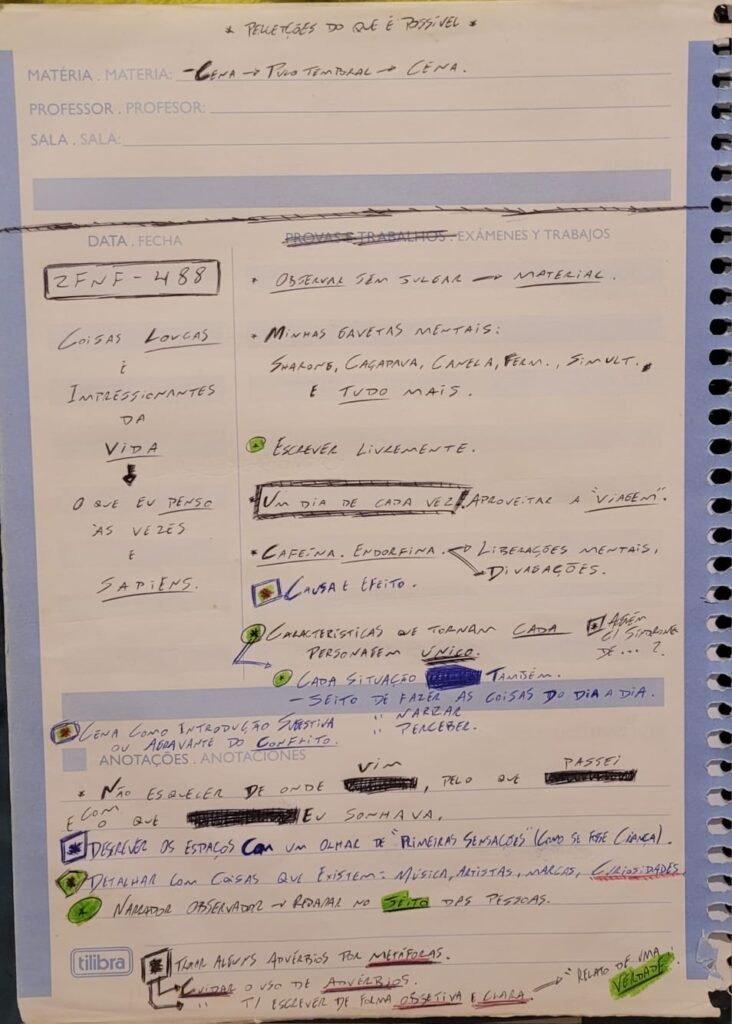 * PELLETÇÕES DO QUE É POSSÍVEL *
MATÉRIA . MATERIA: - CENA → PULO TEMPORAL → CENA.
PROFESSOR . PROFESOR:
SALA . SALA:
DATA . FECHA
ZFNF - 488
COISAS LOUCAS
E
IMPRESSIONANTES
DA
VIDA
↓
O QUE EU PENSO
ÀS VEZES
E
SAPIENS.
PROVAS E TRABALHOS . EXÁMENES Y TRABAJOS
* OBSERVAR SEM JULGAR → MATERIAL.
* MINHAS GAVETAS MENTAIS:
SHARONE, CAÇAPAVA, CANELA, FERM., SIMULT.,
E TUDO MAIS.
* ESCREVER LIVREMENTE.
* UM DIA DE CADA VEZ! APROVEITAR A "VIAGEM".
* CAFEÍNA. ENDORFINA. → LIBERAÇÕES MENTAIS,
→ DIVAGAÇÕES.
* CAUSA E EFEITO.
* CARACTERÍSTICAS QUE TORNAM CADA
PERSONAGEM ÚNICO.
* ALGÉM C/ SÍNDROME
DE... ?
* CADA SITUAÇÃO TAMBÉM.
- JEITO DE FAZER AS COISAS DO DIA A DIA.
" NARRAR
" PERCEBER.
* CENA COMO INTRODUÇÃO SUGESTIVA
OU AGRAVANTE DO CONFLITO.
ANOTAÇÕES . ANOTACIONES
* NÃO ESQUECER DE ONDE VIM, PELO QUE PASSEI
E COM O QUE EU SONHAVA.
* DESCREVER OS ESPAÇOS COM UM OLHAR DE "PRIMEIRAS SENSAÇÕES" (COMO SE FOSSE CRIANÇA).
* DETALHAR COM COISAS QUE EXISTEM: MÚSICA, ARTISTAS, MARCAS, CURIOSIDADES.
* NARRADOR OBSERVADOR → REPARAR NO JEITO DAS PESSOAS.
tilibra
* TIRAR ALGUNS ADVÉRBIOS POR METÁFORAS.
CUIDAR O USO DE ADVÉRBIOS.
" T/ ESCREVER DE FORMA OBJETIVA E CLARA. → "RELATO DE UMA
VERDADE"!